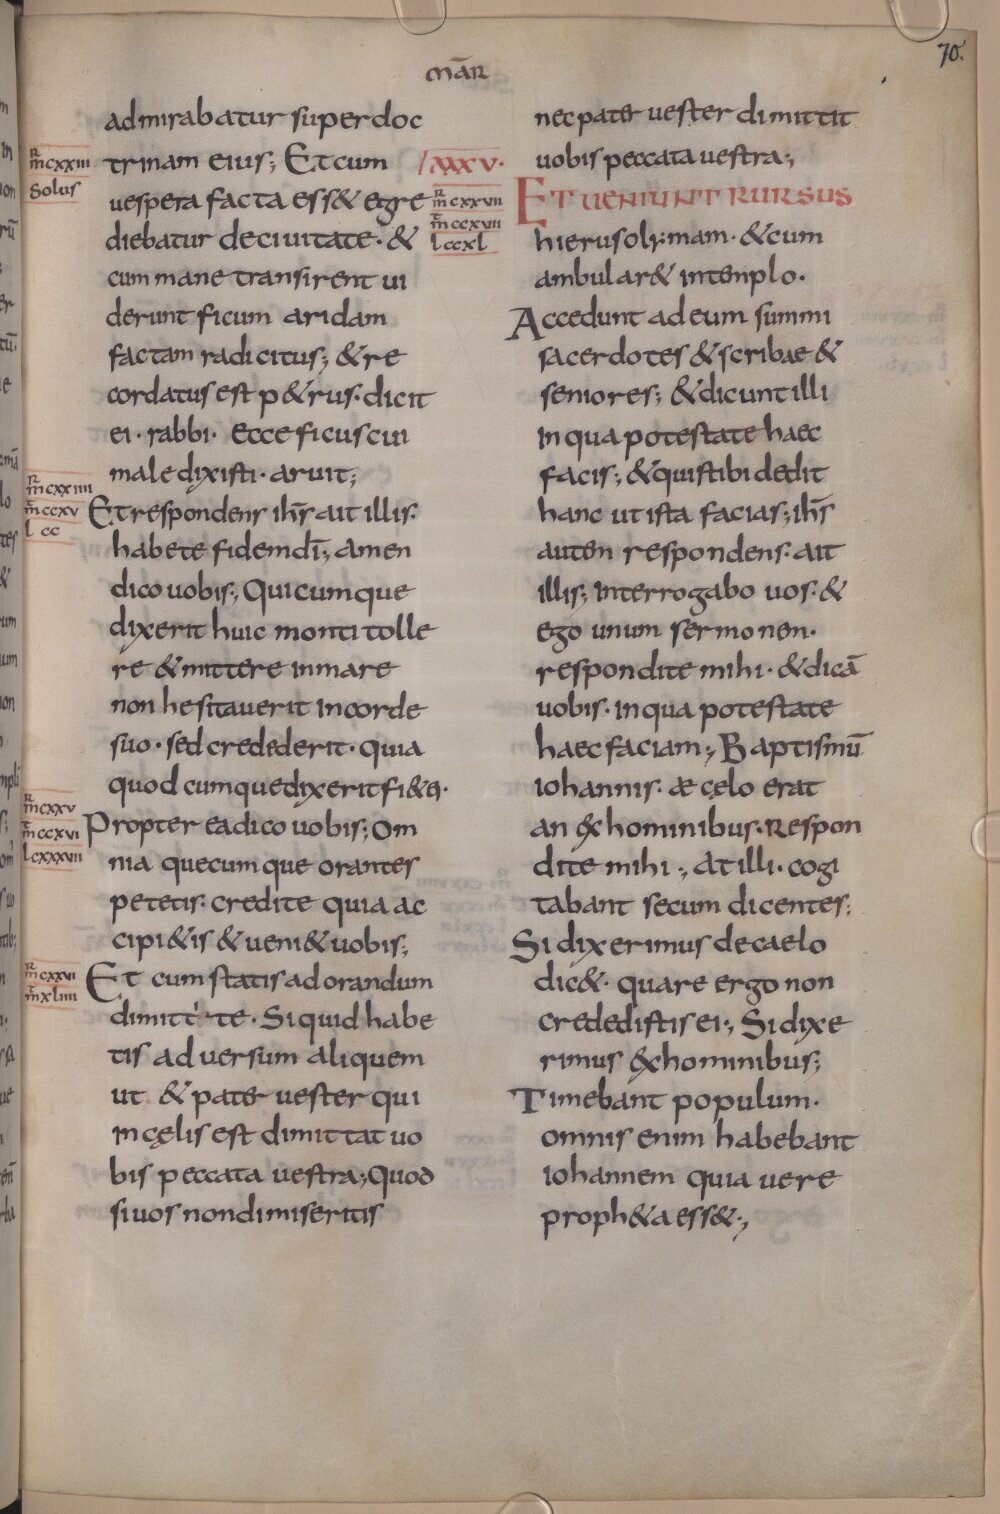 70.
MAR̄
admirabatur super doc
R̄ m̄ cxxiii
Solus
trinam eius; Et cum
uespera facta ess& egre
diebatur de ciuitate· &
cum mane transirent ui
derunt ficum aridam
factam radicitus; & re
cordatus est p&rus· dicit
ei· rabbi· ecce ficus cui
maledixisti· aruit;
R̄ m̄ cxxiiii
m̄ ccxv
l cc
Et respondens ihs̄ ait illis·
habete fidem dī; amen
dico uobis; Quicumque
dixerit huic monti tolle
re & mittere in mare
non hesitauerit in corde
suo· sed credederit· quia
quodcumque dixerit fi&ei·
R̄ m̄ cxxv
m̄ ccxvi
l cxxxviii
Propter ea dico uobis; om
nia quecumque orantes
petetis· credite quia ac
cipi&is & ueni& uobis;
R̄ m̄ cxxvi
m̄ xliiii
Et cum statis ad orandum
dimittite· Si quid habe
tis aduersum aliquem
ut & pater uester qui
in cęlis est dimittat uo
bis peccata uestra; Quod
si uos non dimiseritis
nec pater uester dimittit
uobis peccata uestra;
XXXV·
R̄ m̄ cxxvii
m̄ ccxvii
l ccxl
ET UENIUNT RURSUS
hierusolymam· & cum
ambular& in templo·
Accedunt ad eum summi
sacerdotes & scribae &
seniores; & dicunt illi
in qua potestate haec
facis; & quis tibi dedit
hanc ut ista facias; ihs̄
autem respondens· ait
illis; interrogabo uos· &
ego unum sermonem·
respondite mihi· & dicā
uobis· in qua potestate
haec faciam; Baptismū
iohannis· de cęlo erat
an ex hominibus· Respon
dite mihi; at illi· cogi
tabant secum dicentes;
Si dixerimus de caelo
dic&· quare ergo non
credidistis ei; Si dixe
rimus ex hominibus;
Timebant populum·
omnis enim habebant
iohannem quia uere
proph&a ess&;